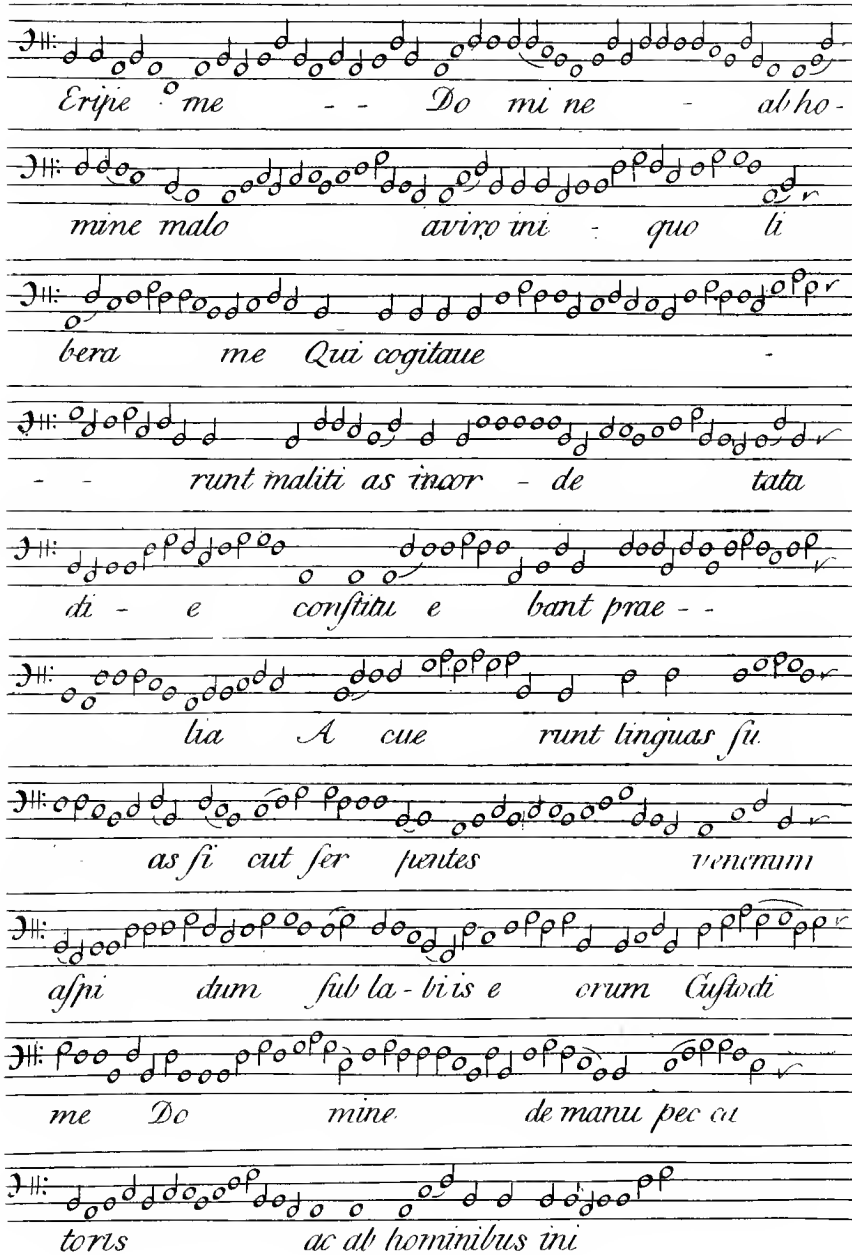 Eripe me - - Do mi ne - ab ho-
mine malo aviro ini - quo li
bera me Qui cogitaue -
- - runt maliti as incor - de tata
di - e conſtitu e bant prae - -
lia A cue runt linguas ſu
as ſi cut ſer pentes venenum
aſpi dum ſub la - bi is e orum Cuſtodi
me Do mine de manu pec ca
toris ac ab hominibus ini